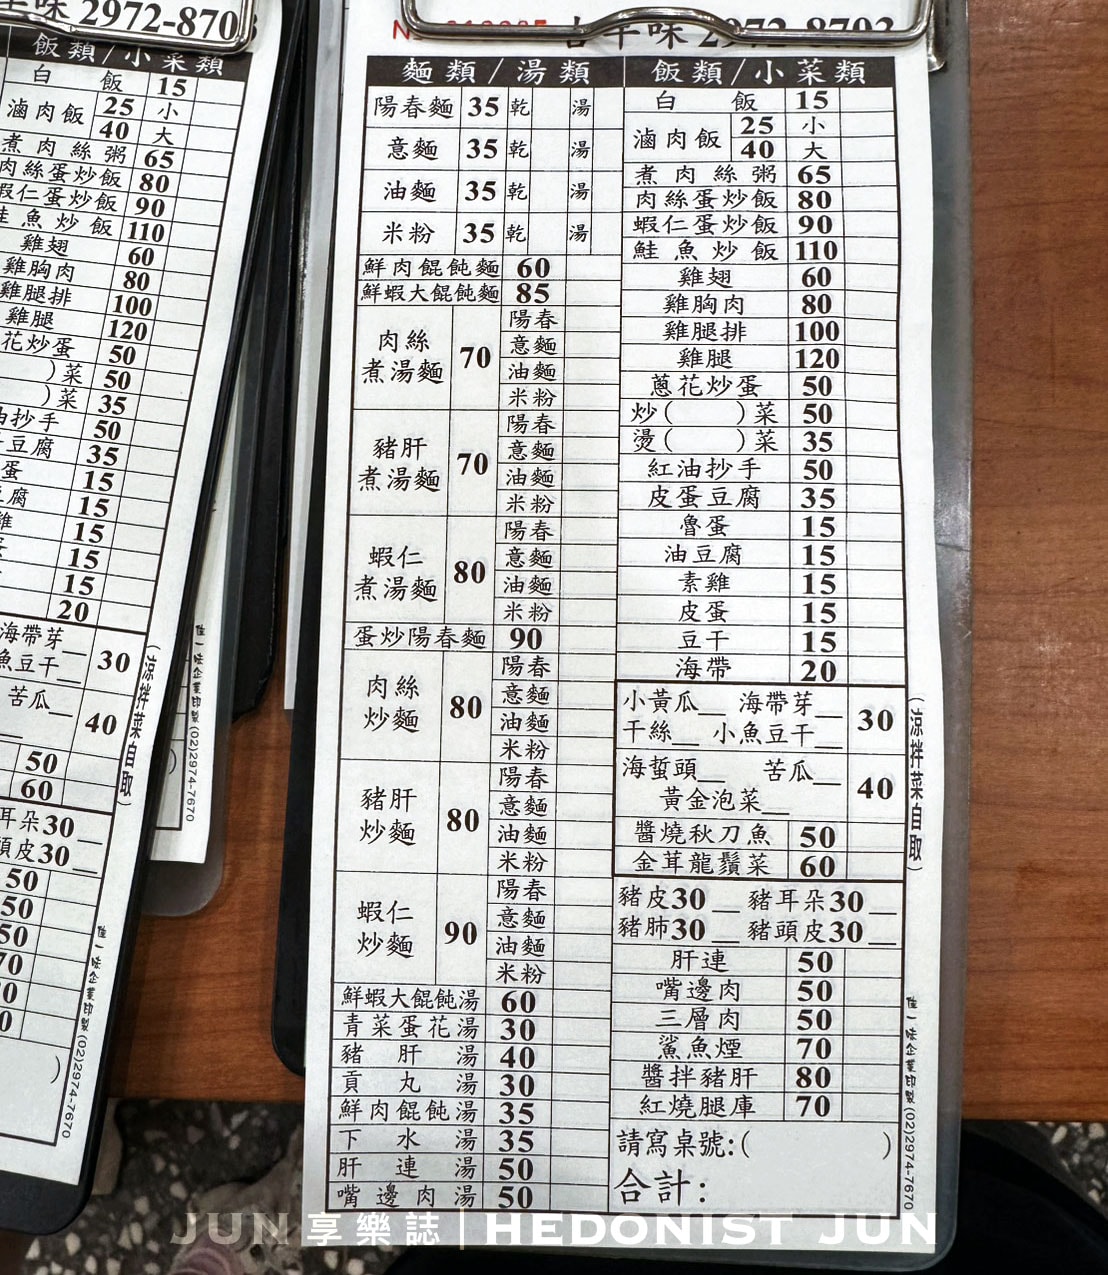 味 2972-870
飯類/小菜類
白 飯 15
滷肉飯 25 小
40 大
煮肉絲粥 65
肉絲蛋炒飯 80
蝦仁蛋炒飯 90
鮭魚炒飯 110
雞翅 60
雞胸肉 80
雞腿排 100
雞腿 120
花炒蛋 50
)菜 50
)菜 35
油抄手 50
豆腐 35
蛋 15
腐 15
雞 15
15
15
20
海帶芽__ 30
魚豆干__
苦瓜__ 40
50
60
耳朵30__
頭皮30__
50
50
50
70
(涼拌菜自取)
唯一味企業印製(02)2974-7670
唯一味企業印製(02)2974-7670
古早味 2972-8703
麵類/湯類
陽春麵 35 乾 湯
意麵 35 乾 湯
油麵 35 乾 湯
米粉 35 乾 湯
鮮肉餛飩麵 60
鮮蝦大餛飩麵 85
肉絲煮湯麵 70 陽春 意麵 油麵 米粉
豬肝煮湯麵 70 陽春 意麵 油麵 米粉
蝦仁煮湯麵 80 陽春 意麵 油麵 米粉
蛋炒陽春麵 90
肉絲炒麵 80 陽春 意麵 油麵 米粉
豬肝炒麵 80 陽春 意麵 油麵 米粉
蝦仁炒麵 90 陽春 意麵 油麵 米粉
鮮蝦大餛飩湯 60
青菜蛋花湯 30
豬肝湯 40
貢丸湯 30
鮮肉餛飩湯 35
下水湯 35
肝連湯 50
嘴邊肉湯 50
飯類/小菜類
白飯 15
滷肉飯 25 小
40 大
煮肉絲粥 65
肉絲蛋炒飯 80
蝦仁蛋炒飯 90
鮭魚炒飯 110
雞翅 60
雞胸肉 80
雞腿排 100
雞腿 120
蔥花炒蛋 50
炒( )菜 50
燙( )菜 35
紅油抄手 50
皮蛋豆腐 35
魯蛋 15
油豆腐 15
素雞 15
皮蛋 15
豆干 15
海帶 20
小黃瓜__ 海帶芽__ 30
干絲__ 小魚豆干__
海蜇頭__ 苦瓜__ 40
黃金泡菜__
醬燒秋刀魚 50
金茸龍鬚菜 60
(涼拌菜自取)
豬皮30__ 豬耳朵30__
豬肺30__ 豬頭皮30__
肝連 50
嘴邊肉 50
三層肉 50
鯊魚煙 70
醬拌豬肝 80
紅燒腿庫 70
請寫桌號:( )
合計:
唯一味企業印製(02)2974-7670
JUN享樂誌|HEDONIST JUN